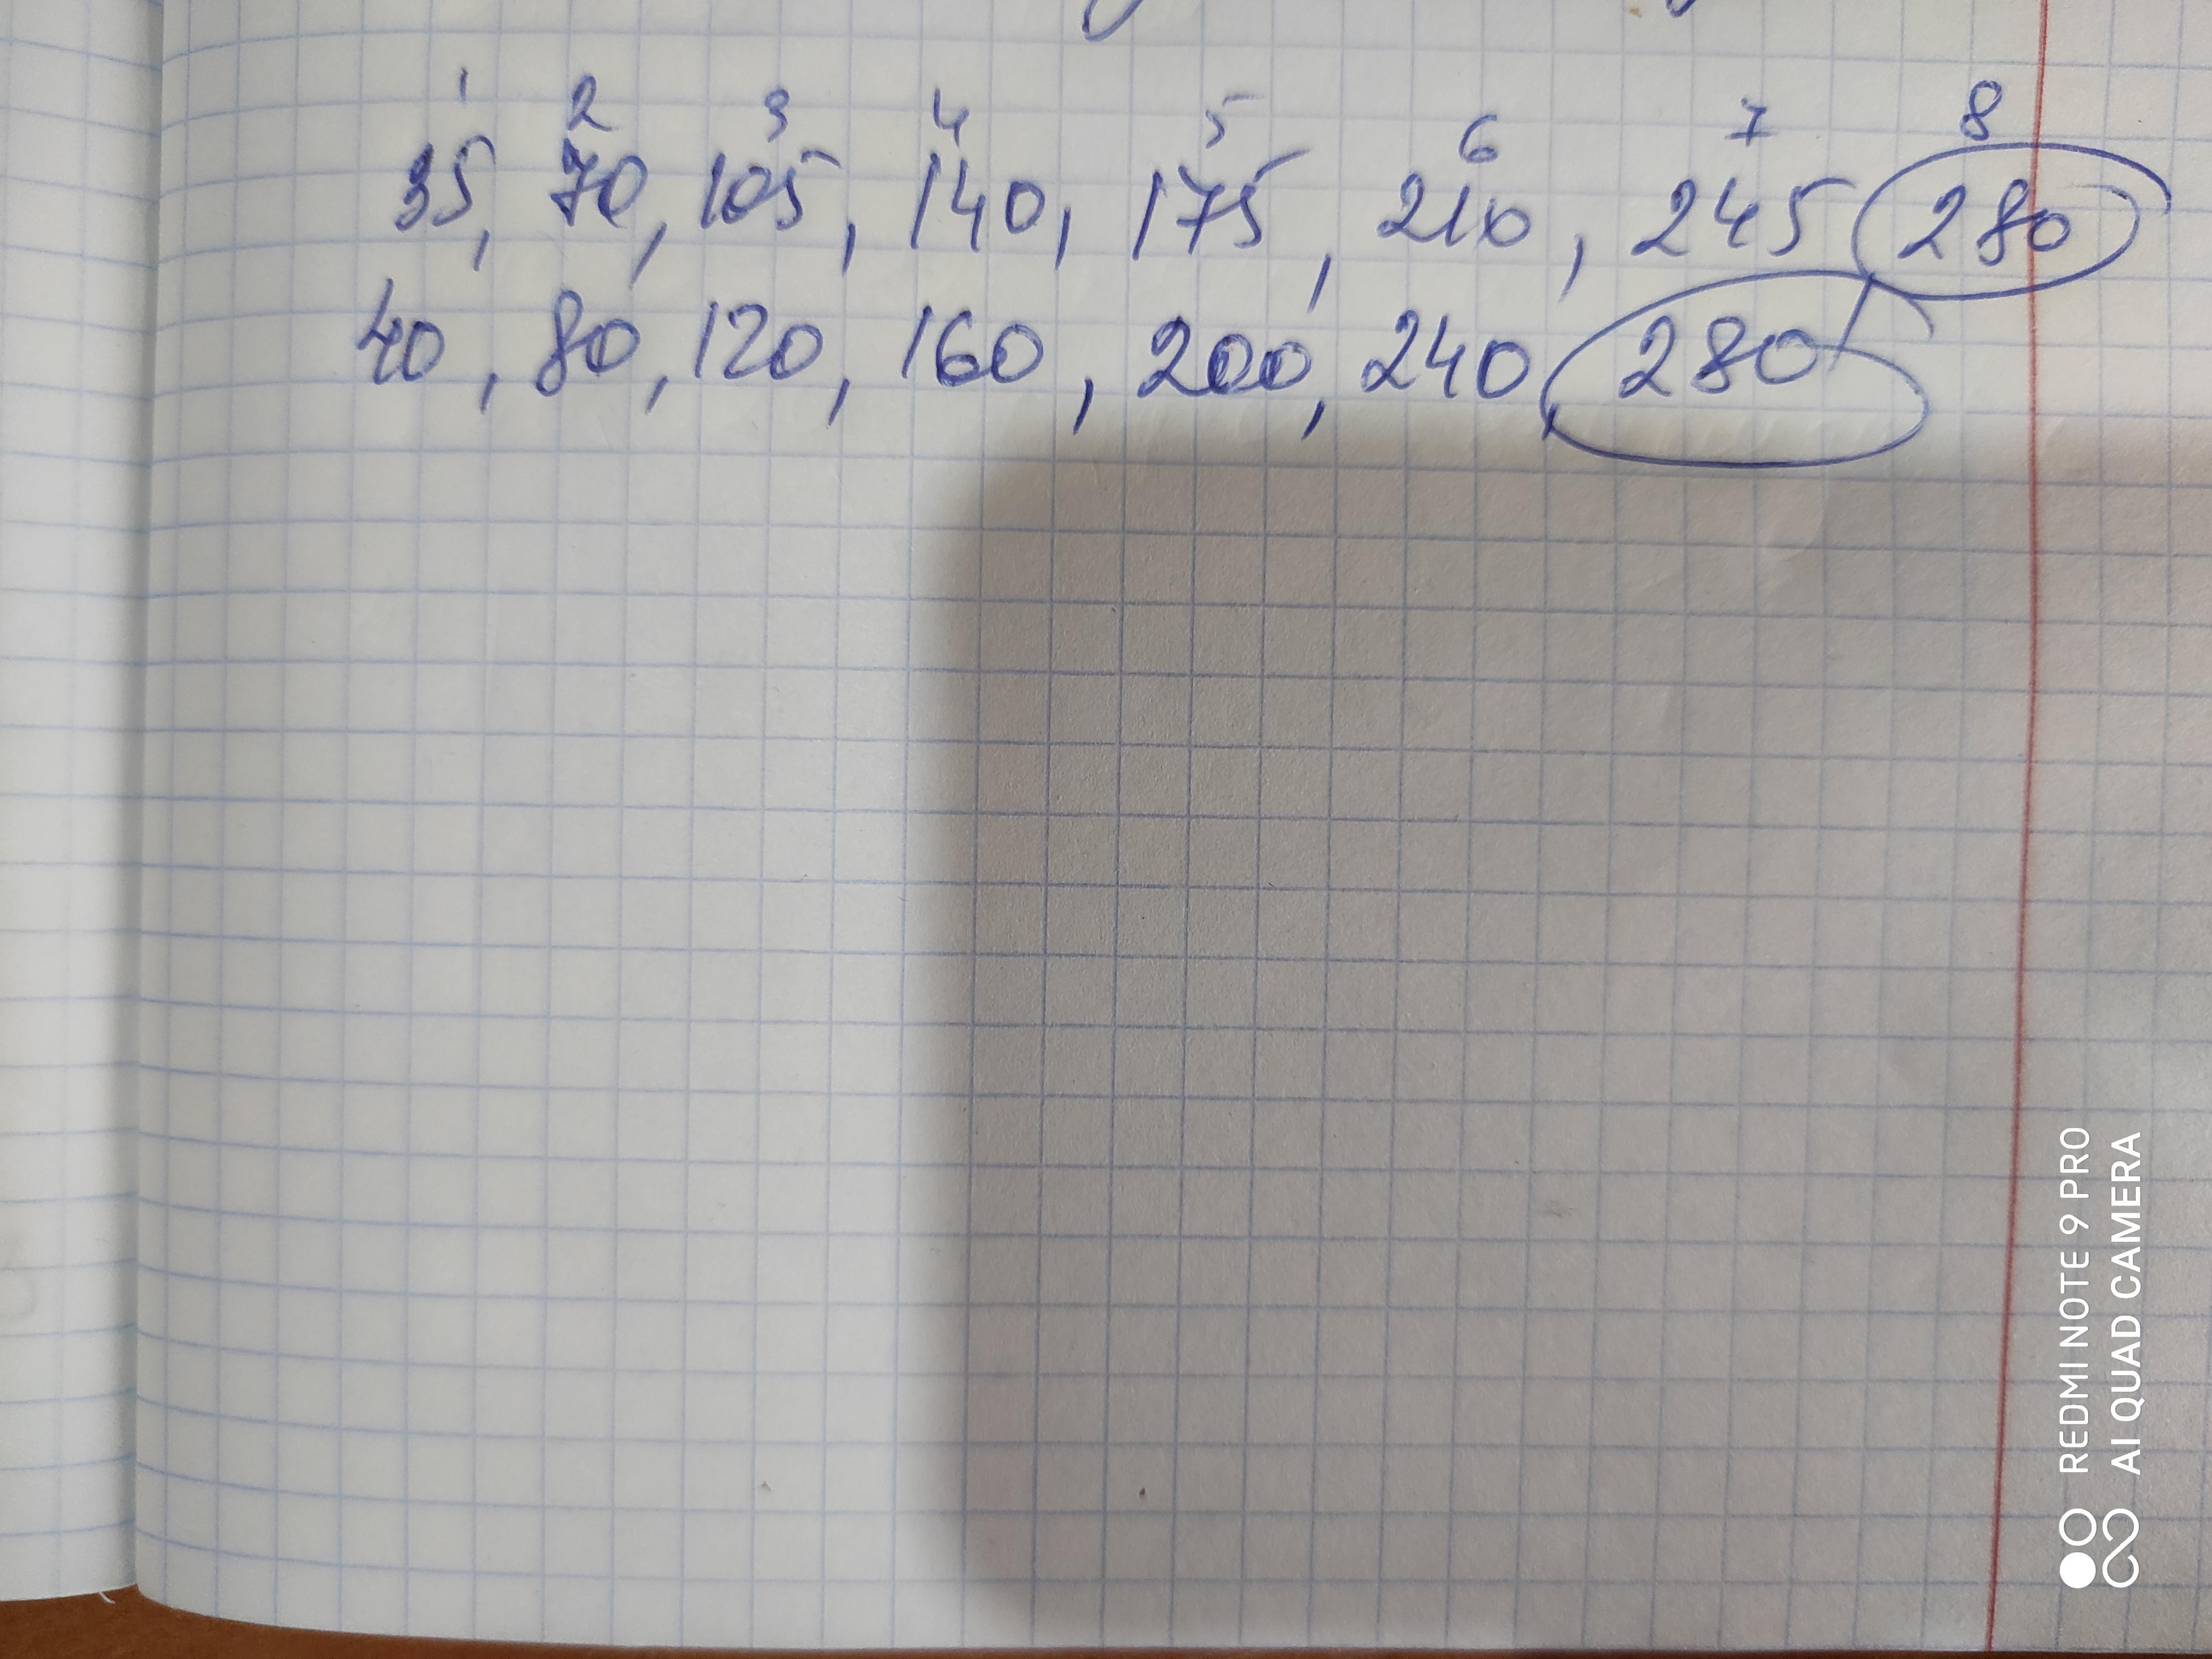 1 2 3 4 5 6 7 8
35, 70, 105, 140, 175, 210, 245 280
40, 80, 120, 160, 200, 240 280
REDMI NOTE 9 PRO
AI QUAD CAMERA